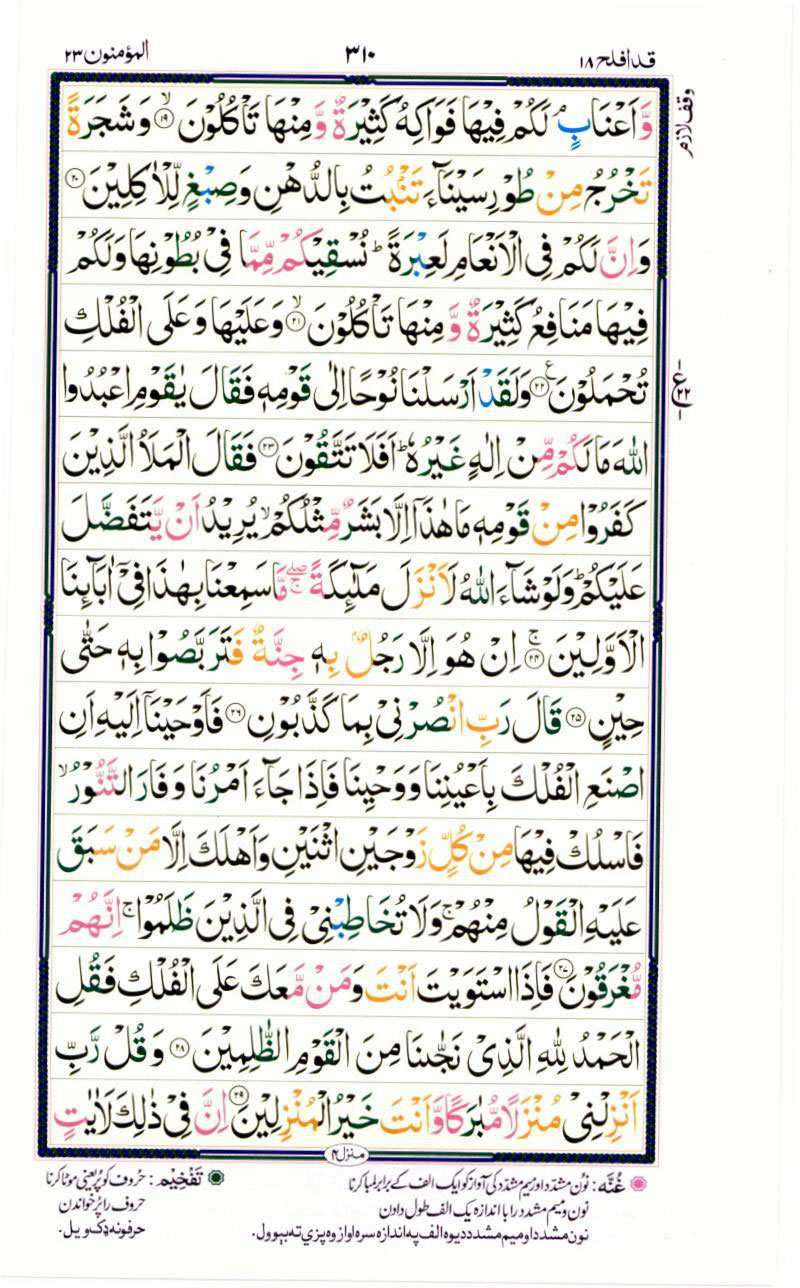 قد افلح ۱۸
۳۱۰
المؤمنون ۲۳
وقف لازم
وَّ اَعْنَابٍ ۘ لَكُمْ فِيْهَا فَوَاكِهُ كَثِيْرَةٌ وَّ مِنْهَا تَاْكُلُوْنَ ۙ﴿۱۹﴾ وَ شَجَرَةً
تَخْرُجُ مِنْ طُوْرِ سَيْنَآءَ تَنْۢبُتُ بِالدُّهْنِ وَ صِبْغٍ لِّلْاٰكِلِيْنَ ﴿۲۰﴾
وَ اِنَّ لَكُمْ فِى الْاَنْعَامِ لَعِبْرَةً ؕ نُسْقِيْكُمْ مِّمَّا فِىْ بُطُوْنِهَا وَ لَكُمْ
فِيْهَا مَنَافِعُ كَثِيْرَةٌ وَّ مِنْهَا تَاْكُلُوْنَ ۙ﴿۲۱﴾ وَ عَلَيْهَا وَ عَلَى الْفُلْكِ
تُحْمَلُوْنَ ﴿۲۲﴾ ع وَ لَقَدْ اَرْسَلْنَا نُوْحًا اِلٰى قَوْمِهٖ فَقَالَ يٰقَوْمِ اعْبُدُوا
ع ۲۲
اللّٰهَ مَا لَكُمْ مِّنْ اِلٰهٍ غَيْرُهٗ ؕ اَفَلَا تَتَّقُوْنَ ﴿۲۳﴾ فَقَالَ الْمَلَؤُا الَّذِيْنَ
كَفَرُوْا مِنْ قَوْمِهٖ مَا هٰذَاۤ اِلَّا بَشَرٌ مِّثْلُكُمْ ۙ يُرِيْدُ اَنْ يَّتَفَضَّلَ
عَلَيْكُمْ ؕ وَ لَوْ شَآءَ اللّٰهُ لَاَنْزَلَ مَلٰٓئِكَةً ۖۚ مَّا سَمِعْنَا بِهٰذَا فِىْۤ اٰبَآئِنَا
الْاَوَّلِيْنَ ۚ﴿۲۴﴾ اِنْ هُوَ اِلَّا رَجُلٌۢ بِهٖ جِنَّةٌ فَتَرَبَّصُوْا بِهٖ حَتّٰى
حِيْنٍ ﴿۲۵﴾ قَالَ رَبِّ انْصُرْنِىْ بِمَا كَذَّبُوْنِ ﴿۲۶﴾ فَاَوْحَيْنَاۤ اِلَيْهِ اَنِ
اصْنَعِ الْفُلْكَ بِاَعْيُنِنَا وَ وَحْيِنَا فَاِذَا جَآءَ اَمْرُنَا وَ فَارَ التَّنُّوْرُ ۙ
فَاسْلُكْ فِيْهَا مِنْ كُلٍّ زَوْجَيْنِ اثْنَيْنِ وَ اَهْلَكَ اِلَّا مَنْ سَبَقَ
عَلَيْهِ الْقَوْلُ مِنْهُمْ ۚ وَ لَا تُخَاطِبْنِىْ فِى الَّذِيْنَ ظَلَمُوْا ۚ اِنَّهُمْ
مُّغْرَقُوْنَ ﴿۲۷﴾ فَاِذَا اسْتَوَيْتَ اَنْتَ وَ مَنْ مَّعَكَ عَلَى الْفُلْكِ فَقُلِ
الْحَمْدُ لِلّٰهِ الَّذِىْ نَجّٰىنَا مِنَ الْقَوْمِ الظّٰلِمِيْنَ ﴿۲۸﴾ وَ قُلْ رَّبِّ
اَنْزِلْنِىْ مُنْزَلًا مُّبٰرَكًا وَّ اَنْتَ خَيْرُ الْمُنْزِلِيْنَ ﴿۲۹﴾ اِنَّ فِىْ ذٰلِكَ لَاٰيٰتٍ
منزل ۴
غُنّه: نون مشدد اور میم مشدد کی آواز کو ایک الف کے برابر لمبا کرنا
تفخیم: حروف کو پُر یعنی موٹا کرنا
نون و میم مشدد را با اندازه یک الف طول دادن
حروف را پُر خواندن
نون مشدد او میم مشدد دیوه الف په اندازه سره اواز وه پزي ته بېوول.
حرفونه ډک ویل.